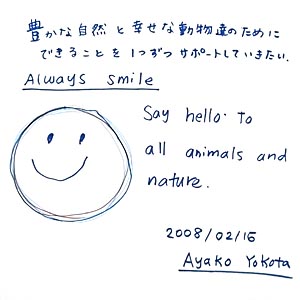 豊かな自然と幸せな動物達のために
できることを1つずつサポートしていきたい.
Always smile
Say hello to
all animals and
nature.
2008/02/15
Ayako Yokota